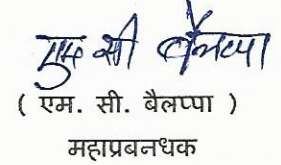 एम सी बैलप्पा
( एम. सी. बैलप्पा )
महाप्रबनधक